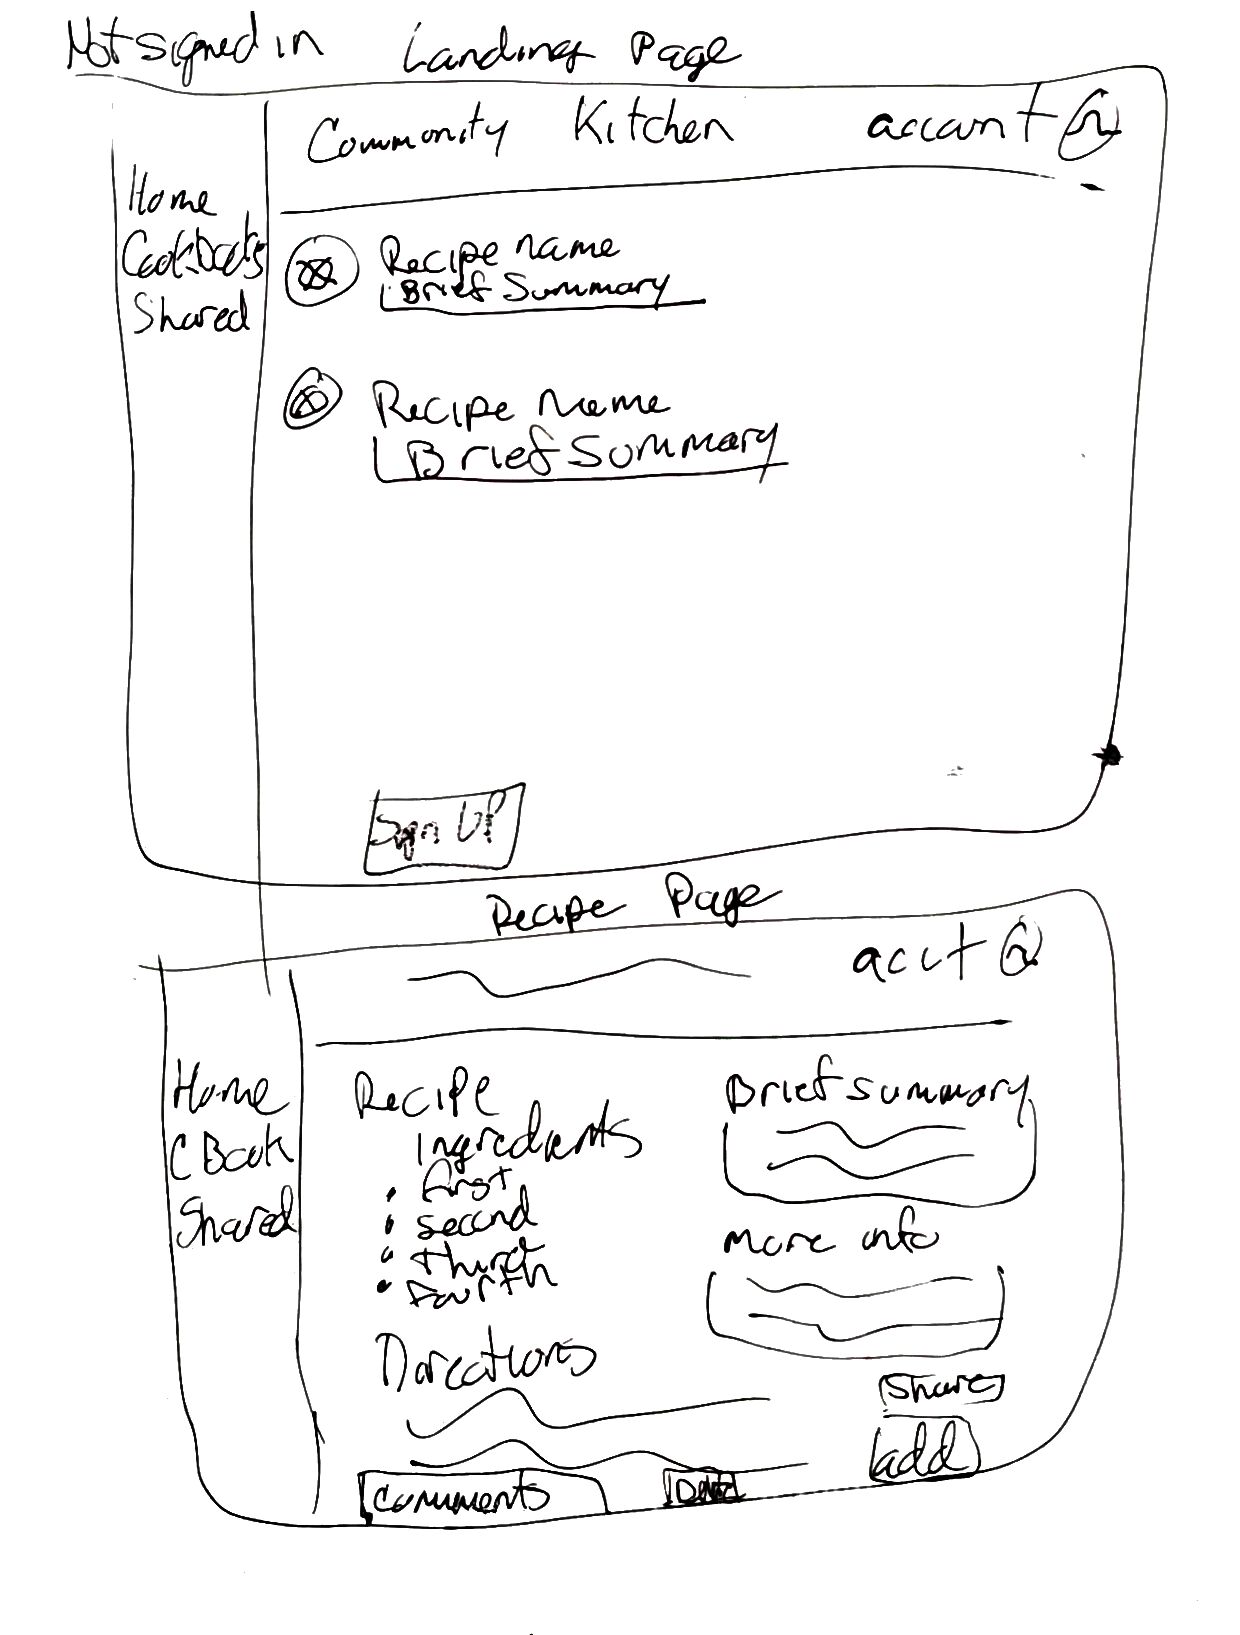 Not signed in Landing Page
Community Kitchen account
Home
Cookbooks
Shared
Recipe name
Brief Summary
Recipe Name
Brief Summary
Sign UP
Recipe Page
acct
Home
C Book
Shared
Recipe
Ingredients
• first
• second
• third
• Fourth
Directions
Brief summary
more info
Share
add
Comments